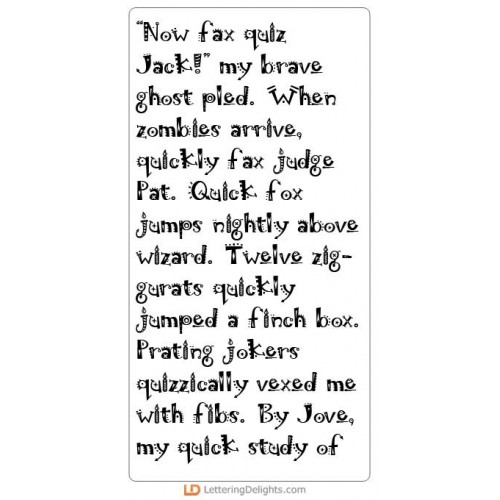 "Now fax quiz
Jack!" my brave
ghost pled. When
zombies arrive,
quickly fax judge
Pat. Quick fox
jumps nightly above
wizard. Twelve zig-
gurats quickly
jumped a finch box.
Prating jokers
quizzically vexed me
with fibs. By Jove,
my quick study of
LD LetteringDelights.com